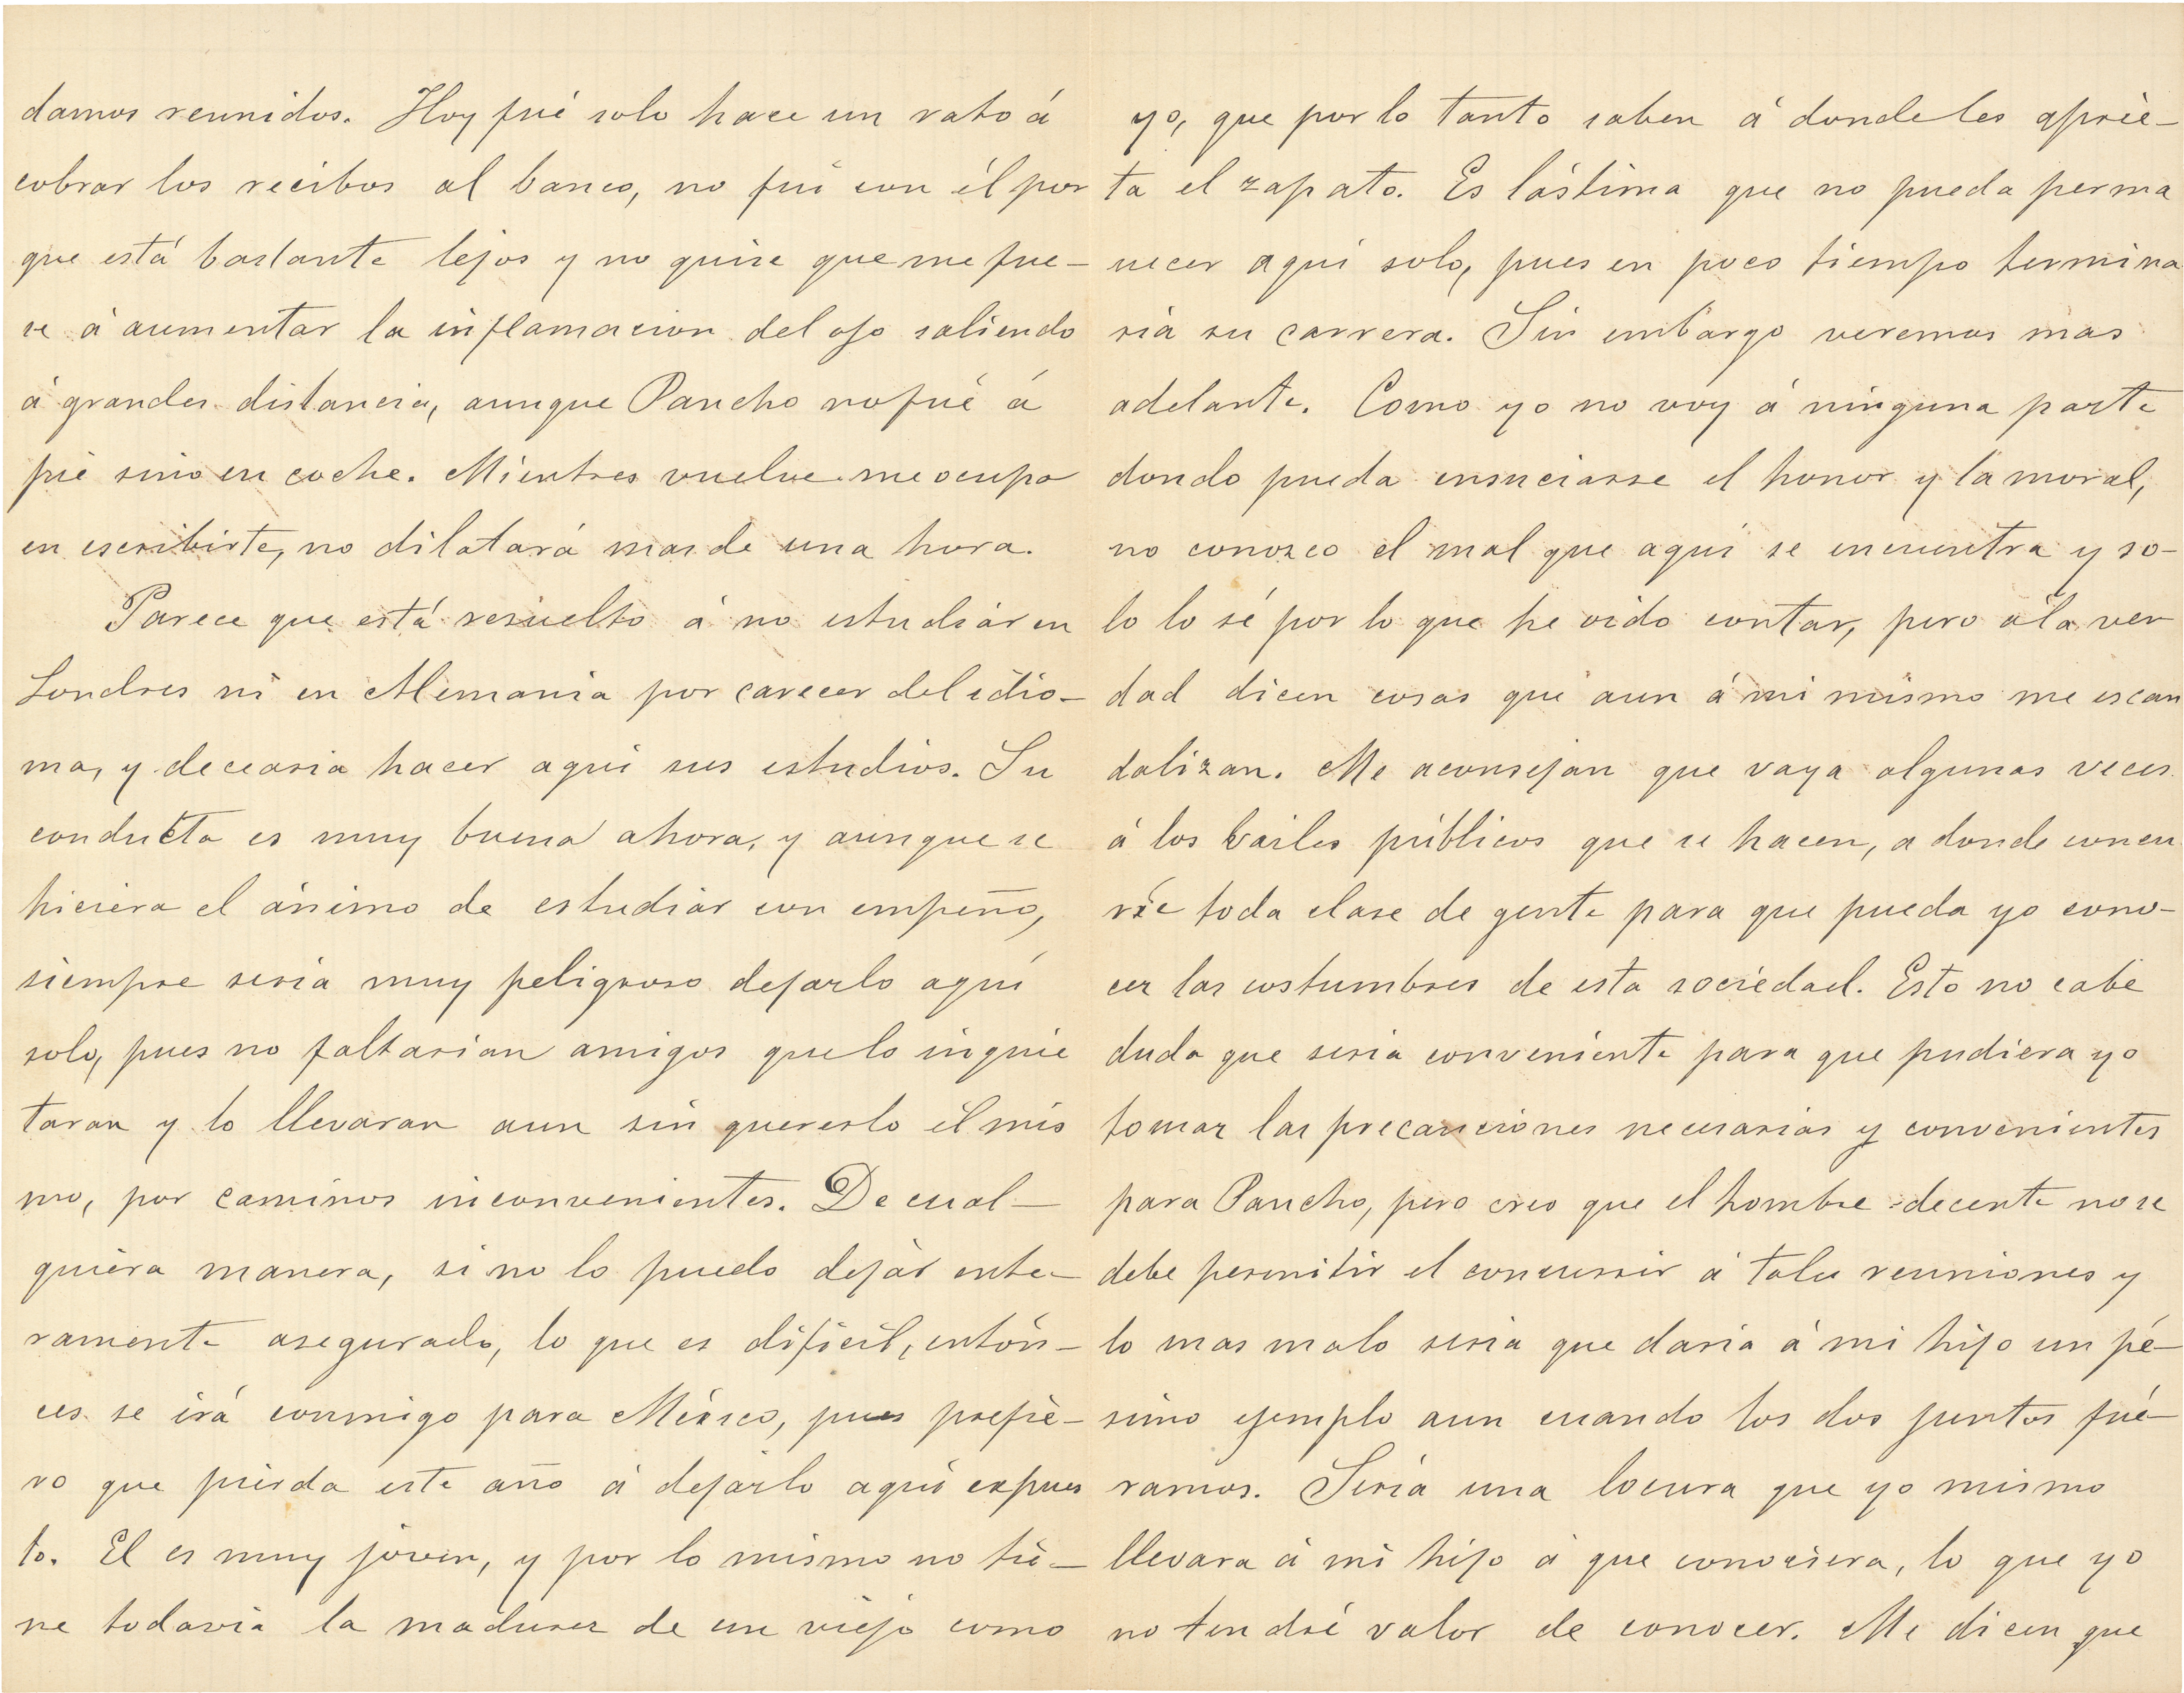 damos reunidos. Hoy fué solo hace un rato á
cobrar los recibos al banco, no fuí con él por
que está bastante lejos y no quise que me fue-
se á aumentar la inflamacion del ojo saliendo
á grandes distancia, aunque Pancho no fué á
pié sino en coche. Mientres vuelve me ocupo
en escribirte, no dilatará mas de una hora.
Parece que está resuelto á no estudiar en
Londres ni en Alemania por carecer del idio-
ma, y decearia hacer aqui sus estudios. Su
conducta es muy buena ahora, y aunque se
hiciera el ánimo de estudiar con empeño,
siempre seria muy peligroso dejarlo aquí
solo, pues no faltarian amigos que lo inquie
taran y lo llevaran aun sin quererlo él mis
mo, por caminos inconvenientes. De cual-
quiera manera, si no lo puedo dejar ente-
ramente asegurado, lo que es dificil, entón-
ces se irá conmigo para México, pues prefie-
ro que pierda este año á dejarlo aquí expues
to. El es muy jóven, y por lo mismo no tie-
ne todavia la madures de un viejo como
yo, que por lo tanto saben á donde les aprie-
ta el zapato. Es lástima que no pueda perma
necer aqui solo, pues en poco tiempo termina
ria su carrera. Sin embargo veremos mas
adelante. Como yo no voy á ninguna parte
donde pueda ensuciarse el honor y la moral,
no conozco el mal que aqui se encuentra y so-
lo lo sé por lo que he oido contar, pero á la ver
dad dicen cosas que aun á mi mismo me escan
dalizan. Me aconsejan que vaya algunas veces
á los bailes públicos que se hacen, a donde concu
rre toda clase de gente para que pueda yo cono-
cer las costumbres de esta sociedad. Esto no cabe
duda que seria conveniente para que pudiera yo
tomar las precauciones necesarias y convenientes
para Pancho, pero creo que el hombre decente no se
debe permitir el concurrir á tales reuniones y
lo mas malo seria que daria á mi hijo un pé-
simo ejemplo aun cuando los dos juntos fué-
ramos. Seria una locura que yo mismo
llevara á mi hijo á que conociera, lo que yo
no tendré valor de conocer. Me dicen que